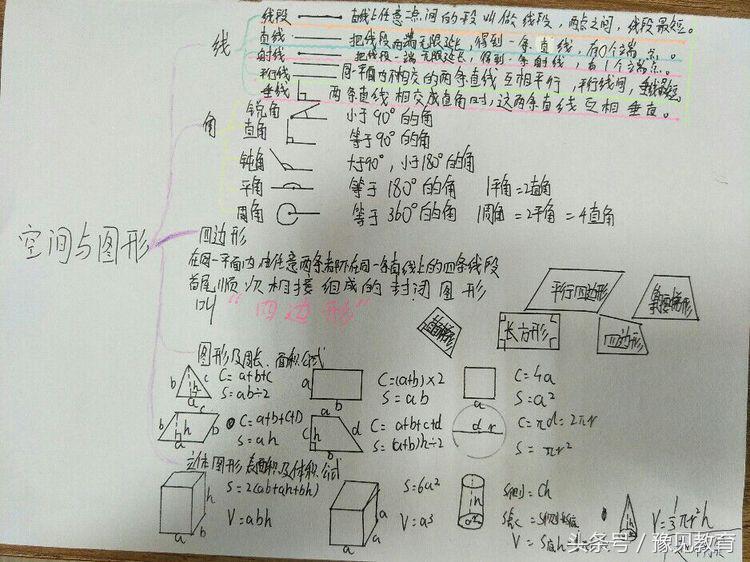 空间与图形
线
线段 直线上任意二点间的段叫做线段，两点之间，线段最短。
直线 把线段两端无限延长，得到一条直线，有0个端点。
射线 把线段一端无限延长，得到一条射线，有1个端点。
平行线 同一平面内不相交的两条直线互相平行，平行线间，垂线段
垂线 两条直线相交成直角时，这两条直线互相垂直。
角
锐角 小于90°的角
直角 等于90°的角
钝角 大于90°，小于180°的角
平角 等于180°的角 1平角=2直角
周角 等于360°的角 1周角=2平角=4直角
四边形
在同一平面内由任意两条都不在同一条直线上的四条线段
首尾顺次相接组成的封闭图形
叫“四边形”
平行四边形
长方形
四边形
图形及周长、面积公式
b c h a C=a+b+c
S=ab÷2
a b C=(a+b)×2
S=ab
a C=4a
S=a²
b h b a C=a+b+c+D
S=ah
a c h d b C=a+b+c+d
S=(a+b)h÷2
d r C=πd=2πr
S=πr²
立体图形表面积及体积公式
h b a S=2(ab+ah+bh)
V=abh
a a a S=6a²
V=a³
h S侧=Ch
V=S底h
h V=1/3πr²h
头条号／豫见教育